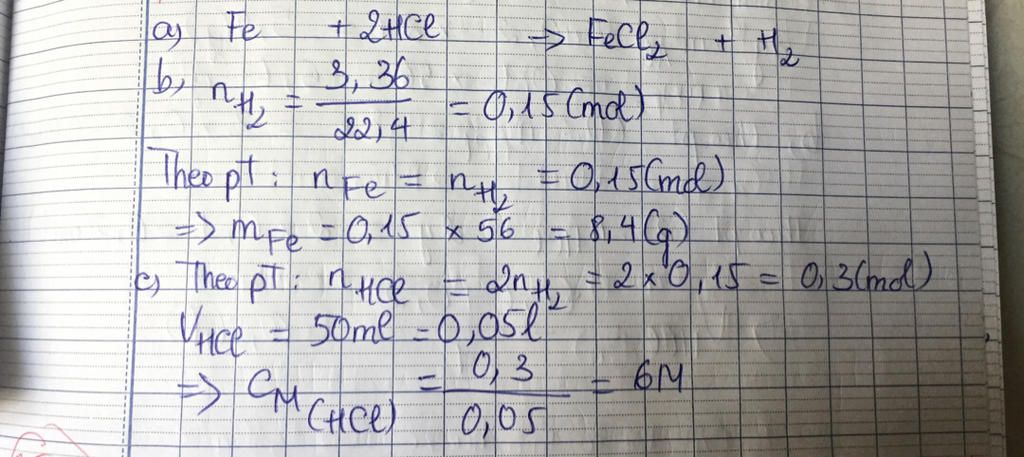 a) Fe + 2HCl => FeCl₂ + H₂
b, nH₂ = 3,36 / 22,4 = 0,15 (mol)
Theo pt: nFe = nH₂ = 0,15 (mol)
=> mFe = 0,15 × 56 = 8,4 (g)
c) Theo pT: nHCl = 2nH₂ = 2 × 0,15 = 0,3 (mol)
VHCl = 50ml = 0,05l
=> CM (HCl) = 0,3 / 0,05 = 6M